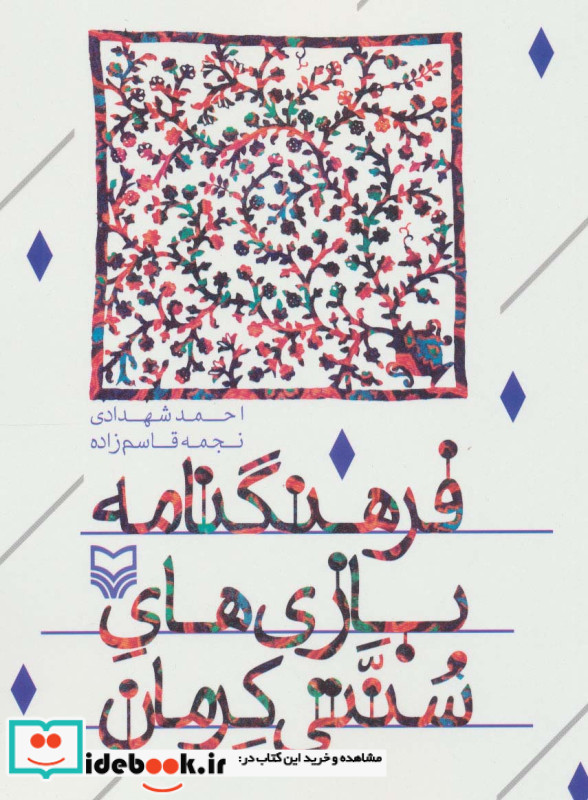 احمد شهدادی
نجمه قاسم‌زاده
فرهنگنامه
بازی‌هایِ
سُنَّتی کِرمان
مشاهده و خرید این کتاب در:
idebook.ir